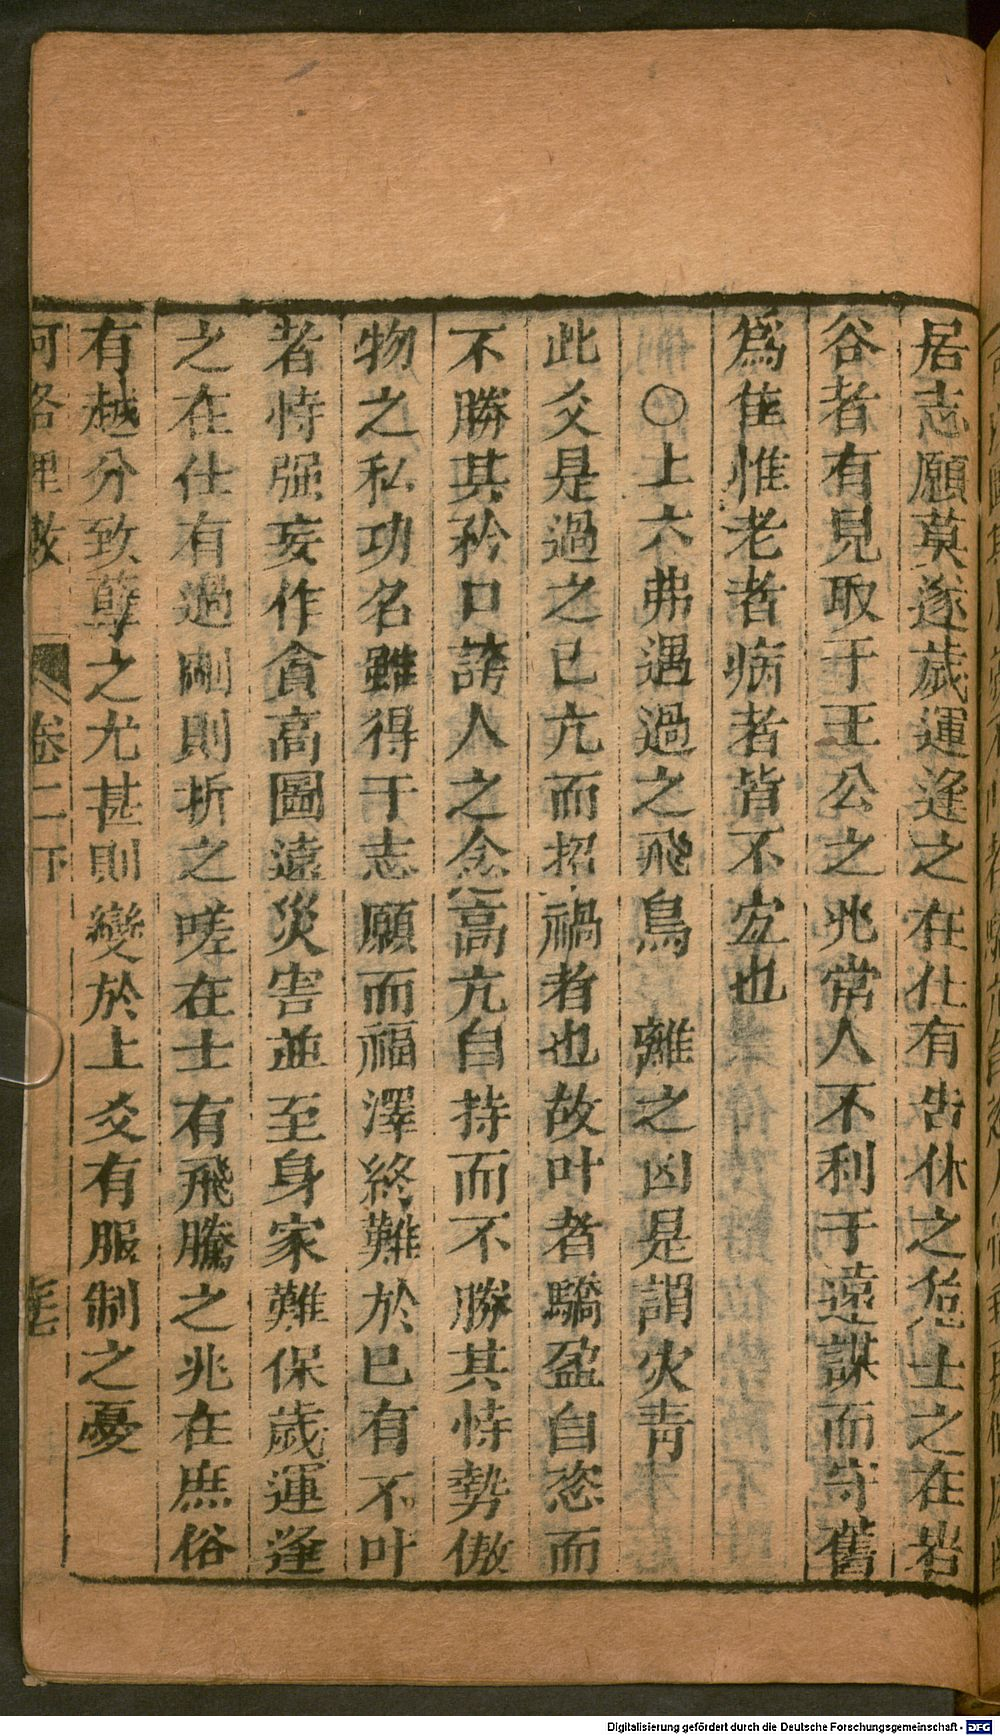 居志願莫遂歲運逢之在仕有告休之危士之在岩
谷者有見取于王公之兆常人不利于遠謀而守舊
爲隹惟老者病者皆不宐也
○上六弗遇過之飛鳥離之凶是謂灾眚
此爻是過之已亢而招禍者也故叶者驕盈自恣而
不勝其矜口誇人之念高亢自持而不勝其恃勢傲
物之私功名雖得于志願而福澤終難於已有不叶
者恃强妄作貪高圖遠災害並至身家難保歲運逢
之在仕有過剛則折之嗟在士有飛騰之兆在庶俗
有越分致孽之尤甚則變於上爻有服制之憂
河洛理數 卷二下
Digitalisierung gefördert durch die Deutsche Forschungsgemeinschaft - DFG